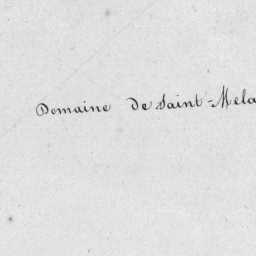 Domaine De Saint-Mela